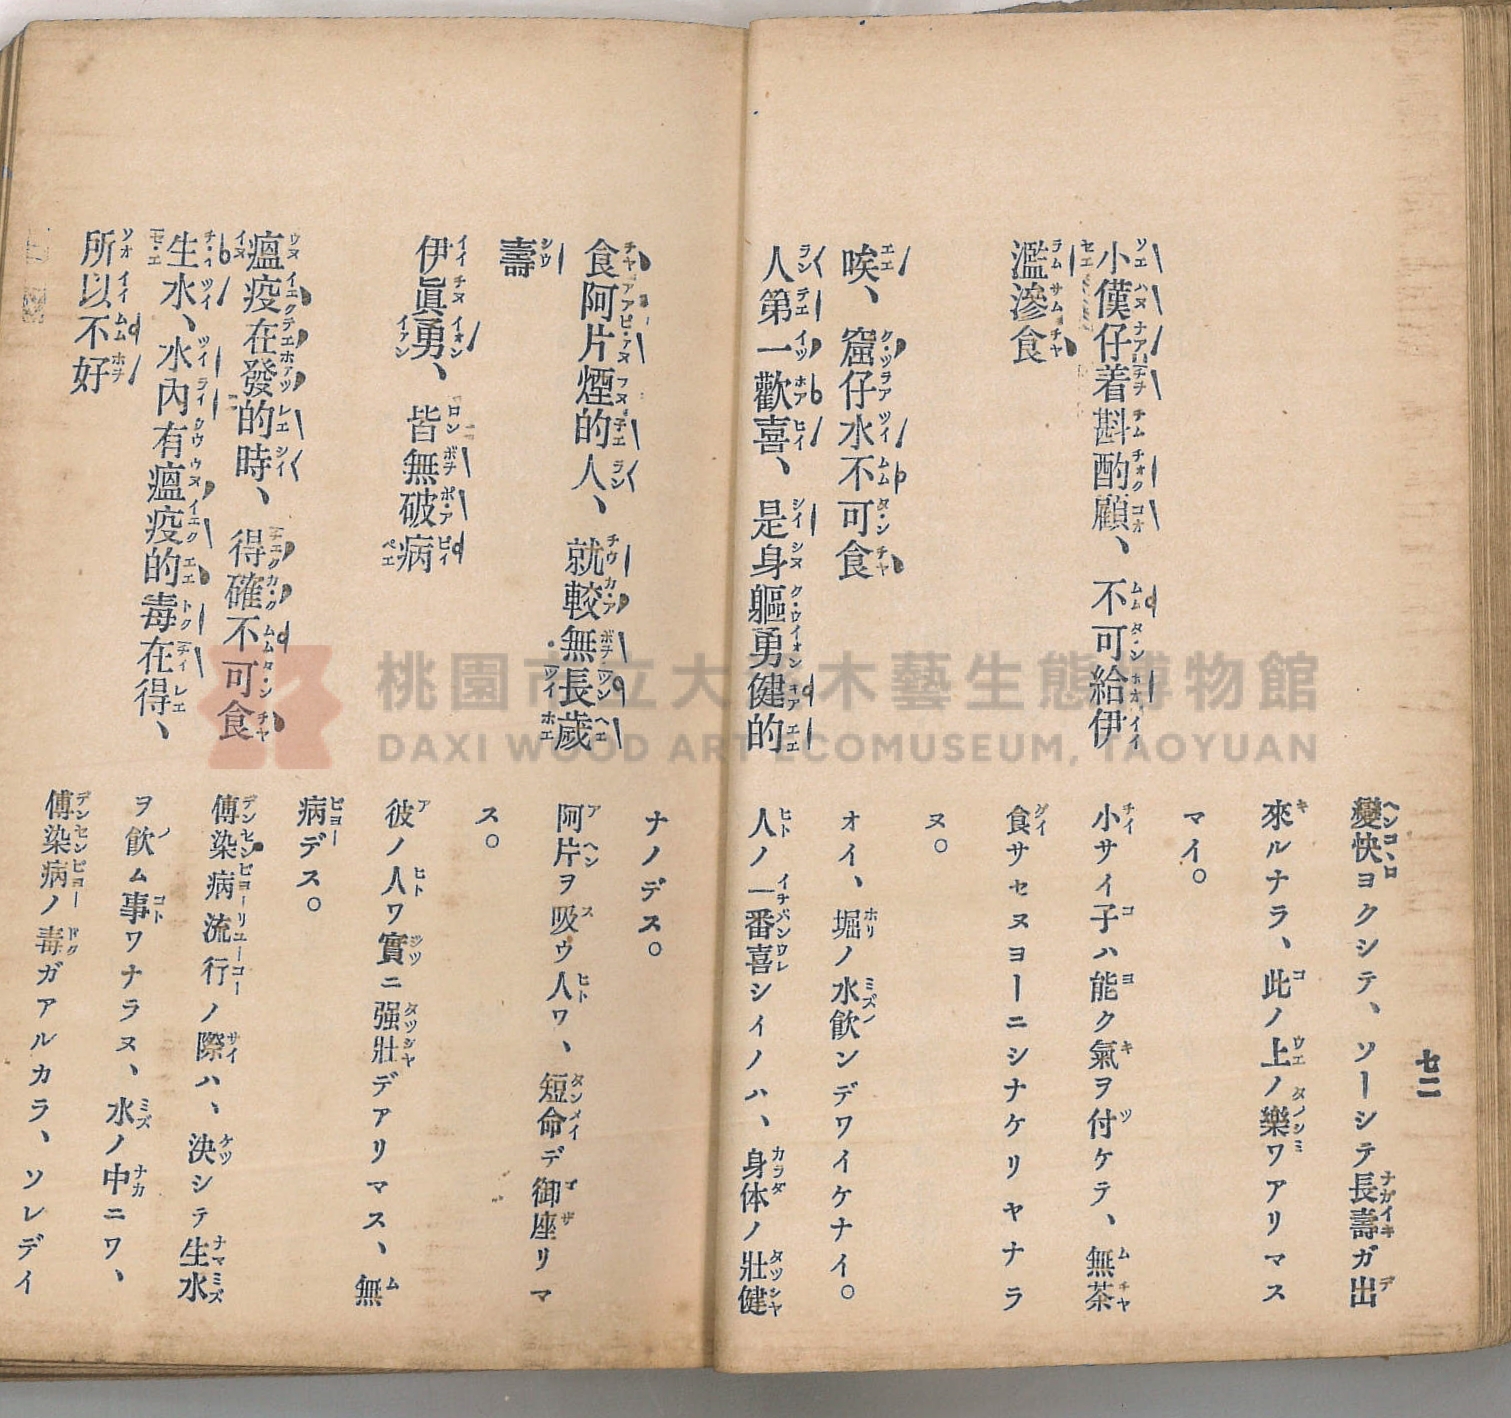 七二
變快ヨクシテ、ソーシテ長壽ガ出
來ルナラ、此ノ上ノ樂ワアリマス
マイ。
小僕仔着斟酌顧、不可給伊
濫滲食
小サイ子ハ能ク氣ヲ付ケテ、無茶
食サセヌヨーニシナケリヤナラ
ヌ。
唉、窟仔水不可食
オイ、堀ノ水飮ンデワイケナイ。
人第一歡喜、是身軀勇健的
人ノ一番喜シイノハ、身体ノ壯健
ナノデス。
食阿片煙的人、就較無長歲
壽
阿片ヲ吸ウ人ワ、短命デ御座リマ
ス。
伊眞勇、皆無破病
彼ノ人ワ實ニ强壯デアリマス、無
病デス。
瘟疫在發的時、得確不可食
生水、水內有瘟疫的毒在得、
所以不好
傳染病流行ノ際ハ、決シテ生水
ヲ飮ム事ワナラヌ、水ノ中ニワ、
傳染病ノ毒ガアルカラ、ソレデイ
桃園市立大溪木藝生態博物館
DAXI WOOD ART ECOMUSEUM, TAOYUAN